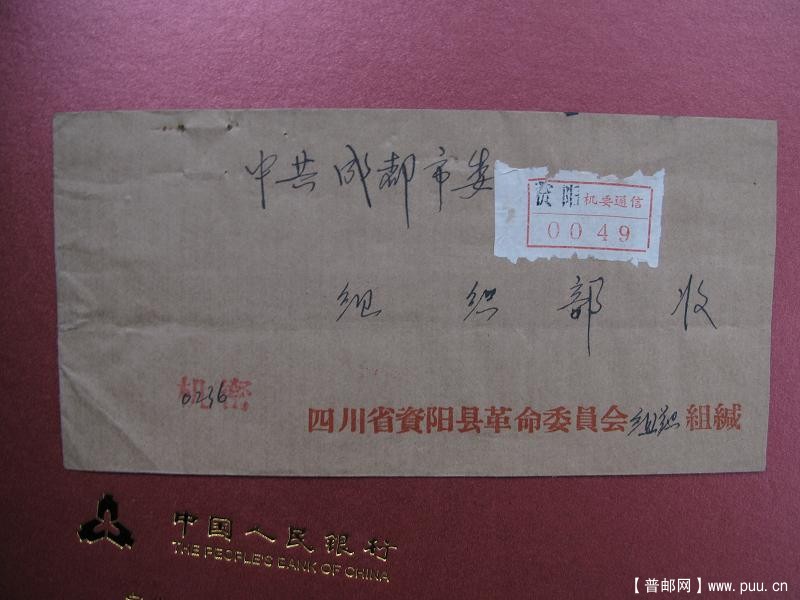 中共成都市委
资阳 机要通信
0049
组织部收
机密
0236
四川省資阳县革命委員会组织組緘
中国人民银行
THE PEOPLE'S BANK OF CHINA
【普邮网】www.puu.cn